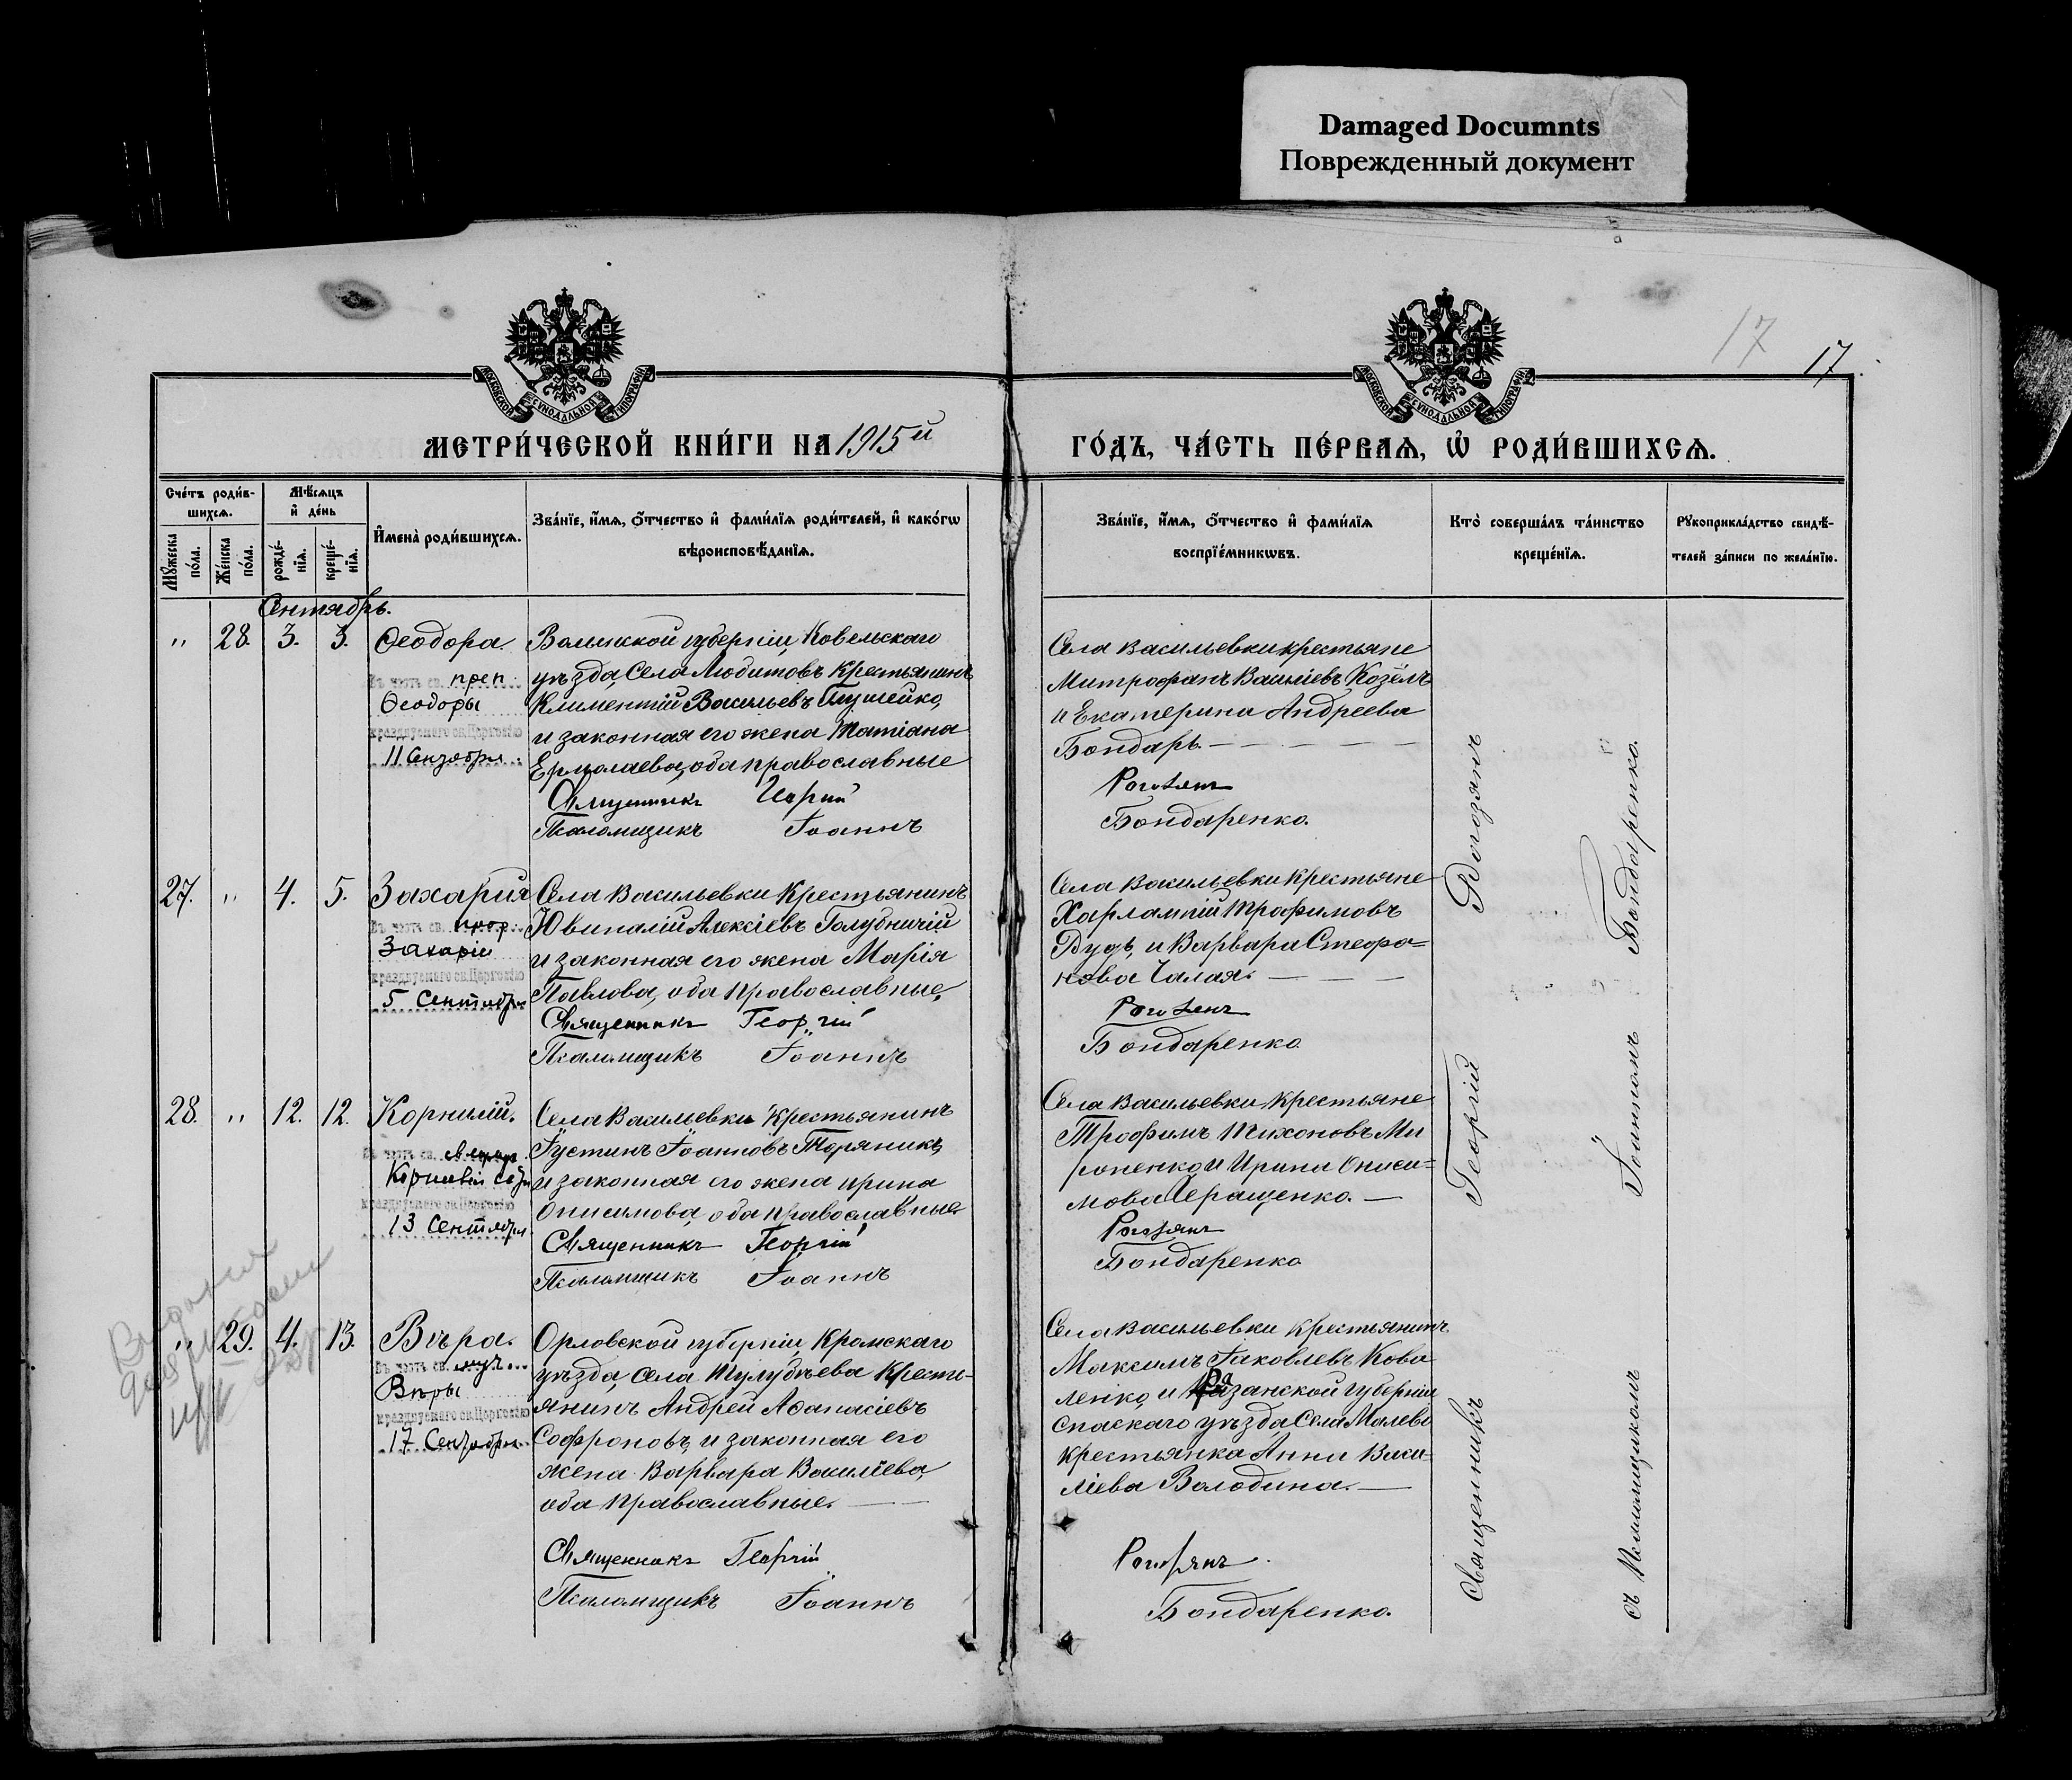 Damaged Documnts
Поврежденный документ
17
17
МОСКОВСКОЙ СѴНОДАЛЬНОЙ ТИПОГРАФІИ
МОСКОВСКОЙ СѴНОДАЛЬНОЙ ТИПОГРАФІИ
МЕТРИ́ЧЕСКОЙ КНИ́ГИ НА 1915й
ГО́ДЪ, ЧА́СТЬ ПЕ́РВАѦ, Ѡ҆ РОДИ́ВШИХСѦ.
Сче́тъ роди́в-
шихсѧ.
Мѣ́сѧцъ
и҆ де́нь
Мꙋ́жеска по́ла.
Же́нска по́ла.
рожде́-
нїѧ.
креще́-
нїѧ.
И҆мена̀ роди́вшихсѧ.
Зва́нїе, и҆́мѧ, ѻ҆́тчество и҆ фами́лїѧ роди́телей, и҆ како́гѡ
вѣроисповѣ́данїѧ.
Зва́нїе, и҆́мѧ, ѻ҆́тчество и҆ фами́лїѧ
воспрїе́мникѡвъ.
Кто̀ соверша́лъ та́инство
креще́нїѧ.
Рꙋкоприкла́дство свидѣ́-
телей за́писи по жела́нїю.
Сентябрь.
" 28. 3. 3. Ѳеодора.
Въ честь св. преп
Ѳеодоры
празднуемаго св. Церковію
11 Сентября
Волынской губерніи, Ковельскаго
уѣзда, Села Любитовъ Крестьянинъ
Климентій Васильевъ
и законная его жена Татіана
Ермолаева, оба православные
Священникъ Георгій
Псаломщикъ Іоаннъ
Села Васильевки крестьяне
Митрофанъ Василіевъ Козёлъ
и Екатерина Андреева
Бондарь.
Рогозянъ
Бондаренко.
27. " 4. 5. Захарія
Въ честь св. прор
Захаріи
празднуемаго св. Церковію
5 Сентября
Села Васильевки Крестьянинъ
Ювиналій Алексіевъ Голубничій
и законная его жена Марія
Павлова, оба православные,
Священникъ Георгій
Псаломщикъ Іоаннъ
Села Васильевки Крестьяне
Харлампій Трофимовъ
Рудь, и Варвара Стефа=
нова Чалая.
Рогозянъ
Бондаренко
28. " 12. 12. Корнилій.
Въ честь св.
празднуемаго св. Церковію
13 Сентября
Села Васильевки Крестьянинъ
Іустинъ Іоанновъ Торяникъ,
и законная его жена Ирина
Онисимова, оба православные
Священникъ Георгій
Псаломщикъ Іоаннъ
Села Васильевки, Крестьяне
Трофимъ Тихоновъ Ми
роненко, и Ирина Ониси=
мова Геращенко.
Рогозянъ
Бондаренко
" 29. 4. 13. Вѣра.
Въ честь св. муч
Вѣры
празднуемаго св. Церковію
17 Сентября
Орловской губерніи, Кромскаго
уѣзда, села Шулубѣева Кресть-
янинъ Андрей Аѳанасіевъ
Софроновъ, и законная его
жена Варвара Василіева,
оба православные.
Священникъ Георгій
Псаломщикъ Іоаннъ
Села Васильевки крестьянинъ
Максимъ Іаковлевъ Кова
ленко, и Рязанской губерніи
Спаскаго уѣзда Села Малеві
крестьянка Анна Васи-
ліева Володина.
Рогозянъ
Бондаренко.
Священникъ Георгій Рогозянъ
съ Псаломщикомъ Іоанномъ Бондаренко.